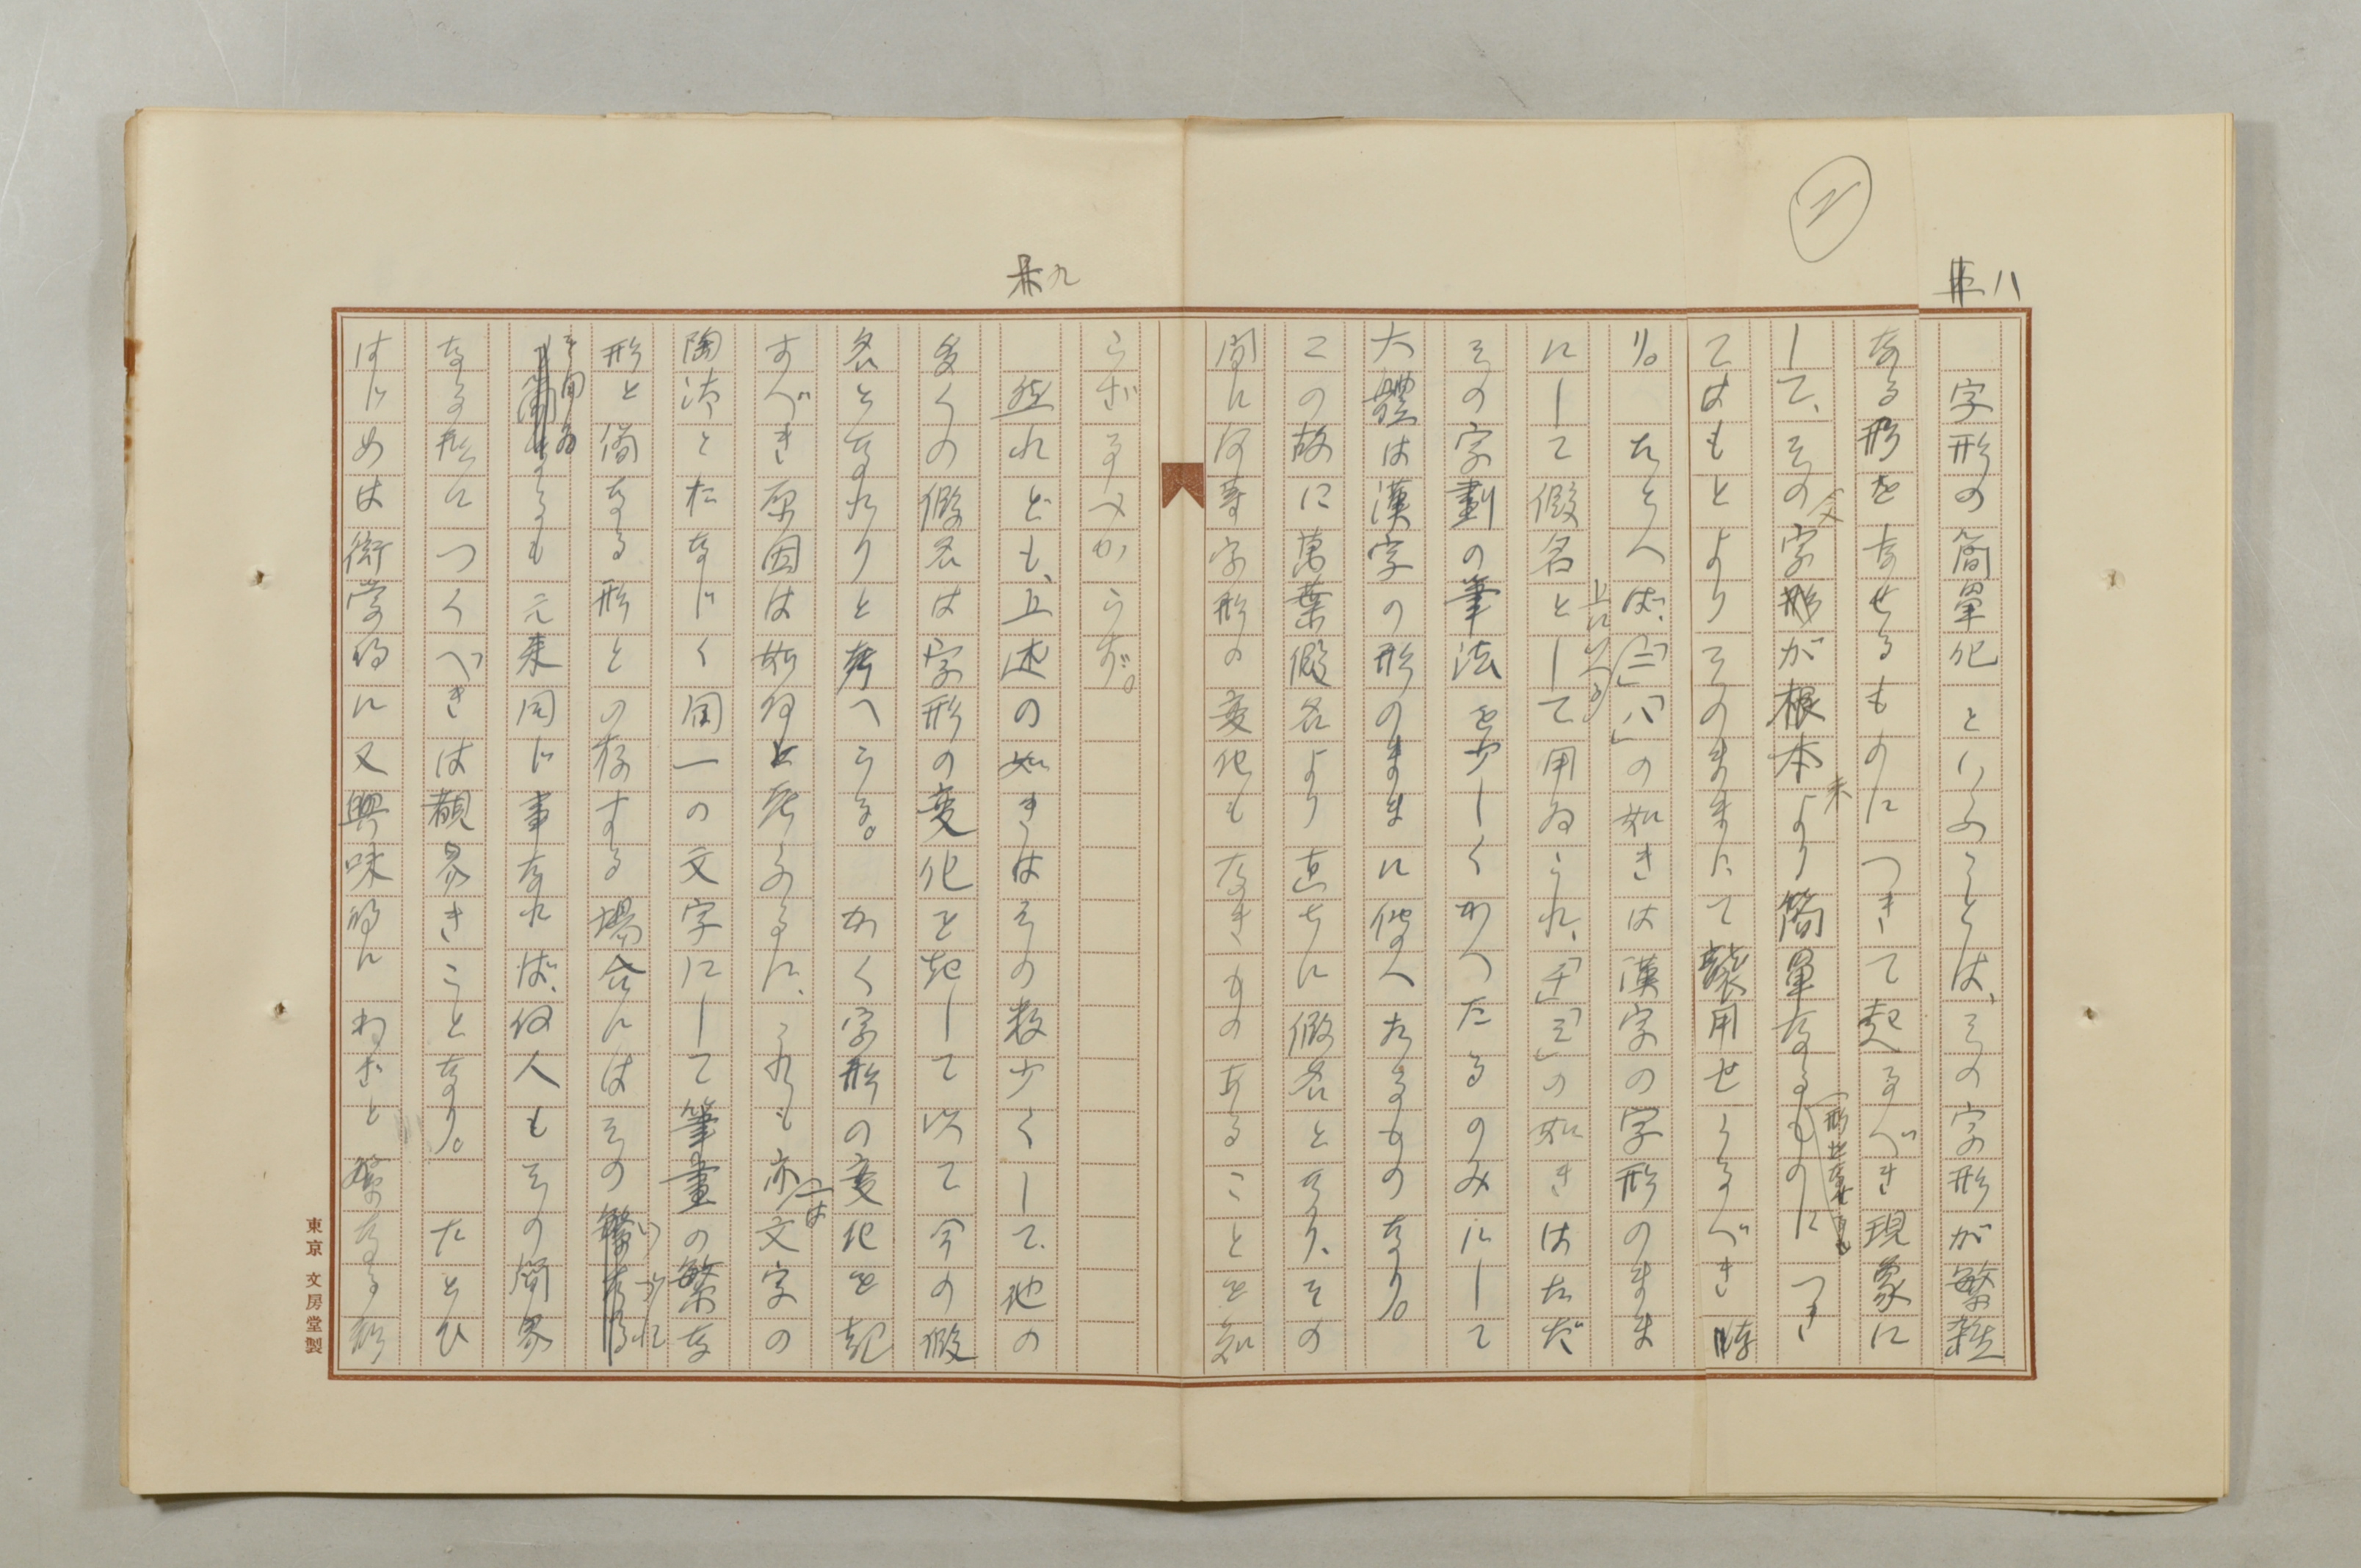 卌八
二
字形の簡單化といふことは、その字形が繁雑
なる形をなせるものにつきて起るべき現象に
して、その字形が根本より簡單なるものにつき
てはもとよりそのままにて襲用せらるべき時
り。 たとへば、「二」「八」の如きは漢字の字形のまま
にして假名として用ゐられ、「千」「三」の如きはただ
その字劃の筆法を少しくかへたるのみにして
大體は漢字の形のままに傳へたるものなり。
この故に萬葉假名より直ちに假名となり、その
間に何等字形の変化もなきものあることを知
卌九
らざるべからず。
然れども、上述の如きはその数少くして、他の
多くの假名は字形の変化を起して以て今の假
名となれりと考へらる。 かく字形の変化を起
すべき原因は如何と考ふるに、これも亦文字の
陶汰と相なじく同一の文字にして筆畫の繁な
形と簡なる形との存する場合にはその
いづれ
を用ゐ
るも元来同じ事なれば、何人もその簡易
なる形につくべきは覩易きことなり。 たとひ
はじめは衒学的に又興味的にわざと繁なる形
東京 文房堂製